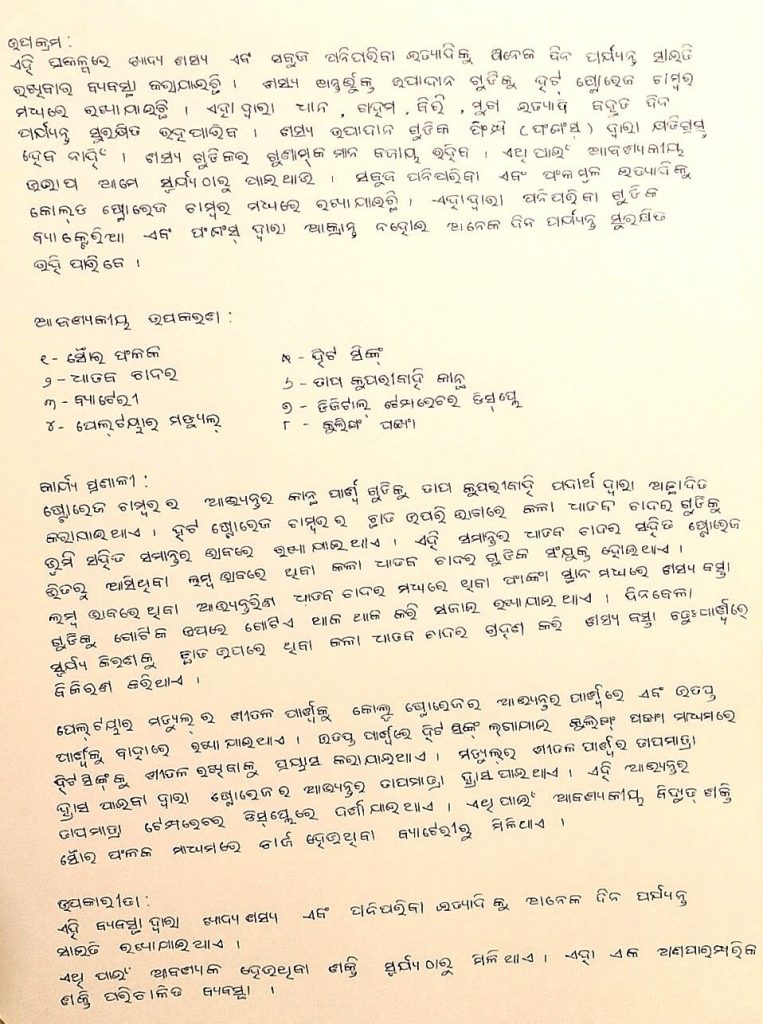 ଉପକ୍ରମ :
ଏହି ପ୍ରକଳ୍ପରେ ଖାଦ୍ୟ ଶସ୍ୟ ଏବଂ ସବୁଜ ପନିପରିବା ଇତ୍ୟାଦିକୁ ଅନେକ ଦିନ ପର୍ଯ୍ୟନ୍ତ ସାଇତି
ରଖିବାର ବ୍ୟବସ୍ଥା କରାଯାଇଛି । ଶସ୍ୟ ଅନ୍ତର୍ଭୁକ୍ତ ଉପାଦାନ ଗୁଡିକୁ ହିଟ ଷ୍ଟୋରେଜ ଚାମ୍ବର
ମଧ୍ୟରେ ରଖାଯାଇଛି । ଏହା ଦ୍ୱାରା ଧାନ , ଗହମ , ବିରି , ମୁଗ ଇତ୍ୟାଦି ବହୁତ ଦିନ
ପର୍ଯ୍ୟନ୍ତ ସୁରକ୍ଷିତ ରହିପାରିବ । ଶସ୍ୟ ଉପାଦାନ ଗୁଡିକ ଫିମ୍ପି (ଫଂଗସ୍) ଦ୍ୱାରା କ୍ଷତିଗ୍ରସ୍ତ
ହେବ ନାହିଁ । ଶସ୍ୟ ଗୁଡିକର ଗୁଣାତ୍ମକ ମାନ ବଜାୟ ରହିବ । ଏଥି ପାଇଁ ଆବଶ୍ୟକୀୟ
ଉତ୍ତାପ ଆମେ ସୂର୍ଯ୍ୟ ଠାରୁ ପାଇଥାଉ । ସବୁଜ ପନିପରିବା ଏବଂ ଫଳମୂଳ ଇତ୍ୟାଦିକୁ
କୋଲ୍ଡ ଷ୍ଟୋରେଜ ଚାମ୍ବର ମଧ୍ୟରେ ରଖାଯାଇଛି । ଏହାଦ୍ୱାରା ପନିପରିବା ଗୁଡିକ
ବ୍ୟାକ୍ଟେରିଆ ଏବଂ ଫଂଗସ୍ ଦ୍ୱାରା ଆକ୍ରାନ୍ତ ନହୋଇ ଅନେକ ଦିନ ପର୍ଯ୍ୟନ୍ତ ସୁରକ୍ଷିତ
ରହି ପାରିବେ ।
ଆବଶ୍ୟକୀୟ ଉପକରଣ :
୧ - ସୌର ଫଳକ
୨ - ଧାତବ ଚାଦର
୩ - ବ୍ୟାଟେରୀ
୪ - ପେଲ୍‌ଟିୟାର ମଡ୍ୟୁଲ୍
୫ - ହିଟ ସିଙ୍କ୍
୬ - ତାପ କୁପରୀବାହି କାନ୍ଥ
୭ - ଡିଜିଟାଲ୍ ଟେମ୍ପରେଚର ଡିସ୍‌ପ୍ଲେ
୮ - କୁଲିଙ୍ଗ ପଙ୍ଖା
କାର୍ଯ୍ୟ ପ୍ରଣାଳୀ :
ଷ୍ଟୋରେଜ ଚାମ୍ବର ର ଆଭ୍ୟନ୍ତର କାନ୍ଥ ପାର୍ଶ୍ୱ ଗୁଡିକୁ ତାପ କୁପରୀବାହି ପଦାର୍ଥ ଦ୍ୱାରା ଆଚ୍ଛାଦିତ
କରାଯାଇଥାଏ । ହିଟ ଷ୍ଟୋରେଜ ଚାମ୍ବର ର ଛାତ ଉପରି ଭାଗରେ କଳା ଧାତବ ଚାଦର ଗୁଡିକୁ
ଭୂମି ସହିତ ସମାନ୍ତର ଭାବରେ ରଖାଯାଇଥାଏ । ଏହି ସମାନ୍ତର ଧାତବ ଚାଦର ସହିତ ଷ୍ଟୋରେଜ
ଭିତରୁ ଆସିଥିବା ଲମ୍ବ ଭାବରେ ଥିବା କଳା ଧାତବ ଚାଦର ଗୁଡିକ ସଂଯୁକ୍ତ ହୋଇଥାଏ ।
ଲମ୍ବ ଭାବରେ ଥିବା ଆଭ୍ୟନ୍ତରିଣ ଧାତବ ଚାଦର ମଧ୍ୟରେ ଥିବା ଫାଙ୍କା ସ୍ଥାନ ମଧ୍ୟରେ ଶସ୍ୟ ବସ୍ତା
ଗୁଡିକୁ ଗୋଟିକ ଉପରେ ଗୋଟିଏ ଥାକ ଥାକ କରି ସଜାଇ ରଖାଯାଇଥାଏ । ଦିନବେଳା
ସୂର୍ଯ୍ୟ କିରଣକୁ ଛାତ ଉପରେ ଥିବା କଳା ଧାତବ ଚାଦର ଗ୍ରହଣ କରି ଶସ୍ୟ ବସ୍ତା ଚତୁଃପାର୍ଶ୍ୱରେ
ବିକିରଣ କରିଥାଏ ।
ପେଲ୍‌ଟିୟାର ମଡ୍ୟୁଲ୍ ର ଶୀତଳ ପାର୍ଶ୍ୱକୁ କୋଲ୍ଡ ଷ୍ଟୋରେଜର ଆଭ୍ୟନ୍ତର ପାର୍ଶ୍ୱରେ ଏବଂ ଉତପ୍ତ
ପାର୍ଶ୍ୱକୁ ବାହାରେ ରଖାଯାଇଥାଏ । ଉତପ୍ତ ପାର୍ଶ୍ୱରେ ହିଟ ସିଙ୍କ୍ ଲଗାଯାଇ କୁଲିଙ୍ଗ ପଙ୍ଖା ମାଧ୍ୟମରେ
ହିଟ ସିଙ୍କ୍ କୁ ଶୀତଳ ରଖିବାକୁ ପ୍ରୟାସ କରାଯାଇଥାଏ । ମଡ୍ୟୁଲ୍‌ର ଶୀତଳ ପାର୍ଶ୍ୱର ତାପମାତ୍ରା
ହ୍ରାସ ପାଇବା ଦ୍ୱାରା ଷ୍ଟୋରେଜ ର ଆଭ୍ୟନ୍ତର ତାପମାତ୍ରା ହ୍ରାସ ପାଇଥାଏ । ଏହି ଆଭ୍ୟନ୍ତର
ତାପମାତ୍ରା ଟେମ୍ପରେଚର ଡିସ୍‌ପ୍ଲେରେ ଦର୍ଶାଯାଇଥାଏ । ଏଥି ପାଇଁ ଆବଶ୍ୟକୀୟ ବିଦ୍ୟୁତ୍ ଶକ୍ତି
ସୌର ଫଳକ ମାଧ୍ୟମରେ ଚାର୍ଜ ହେଉଥିବା ବ୍ୟାଟେରୀରୁ ମିଳିଥାଏ ।
ଉପକାରୀତା :
ଏହି ବ୍ୟବସ୍ଥା ଦ୍ୱାରା ଖାଦ୍ୟ ଶସ୍ୟ ଏବଂ ପନିପରିବା ଇତ୍ୟାଦି କୁ ଅନେକ ଦିନ ପର୍ଯ୍ୟନ୍ତ
ସାଇତି ରଖାଯାଇଥାଏ ।
ଏଥି ପାଇଁ ଆବଶ୍ୟକ ହେଉଥିବା ଶକ୍ତି ସୂର୍ଯ୍ୟ ଠାରୁ ମିଳିଥାଏ । ଏହା ଏକ ଅଣପାରମ୍ପରିକ
ଶକ୍ତି ପରିଚାଳିତ ବ୍ୟବସ୍ଥା ।